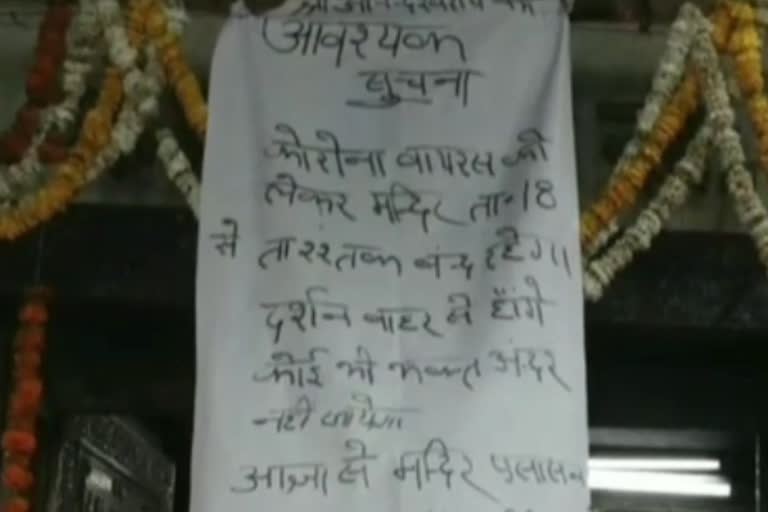 आवश्यक
सुचना
कोरोना वायरस को
लेकर मन्दिर ता॰18
से ता २२ तक बन्द रहेगा
दर्शन बाहर से होंगे
कोई भी भक्त अंदर
नही जायेगा
आज्ञा से मंदिर